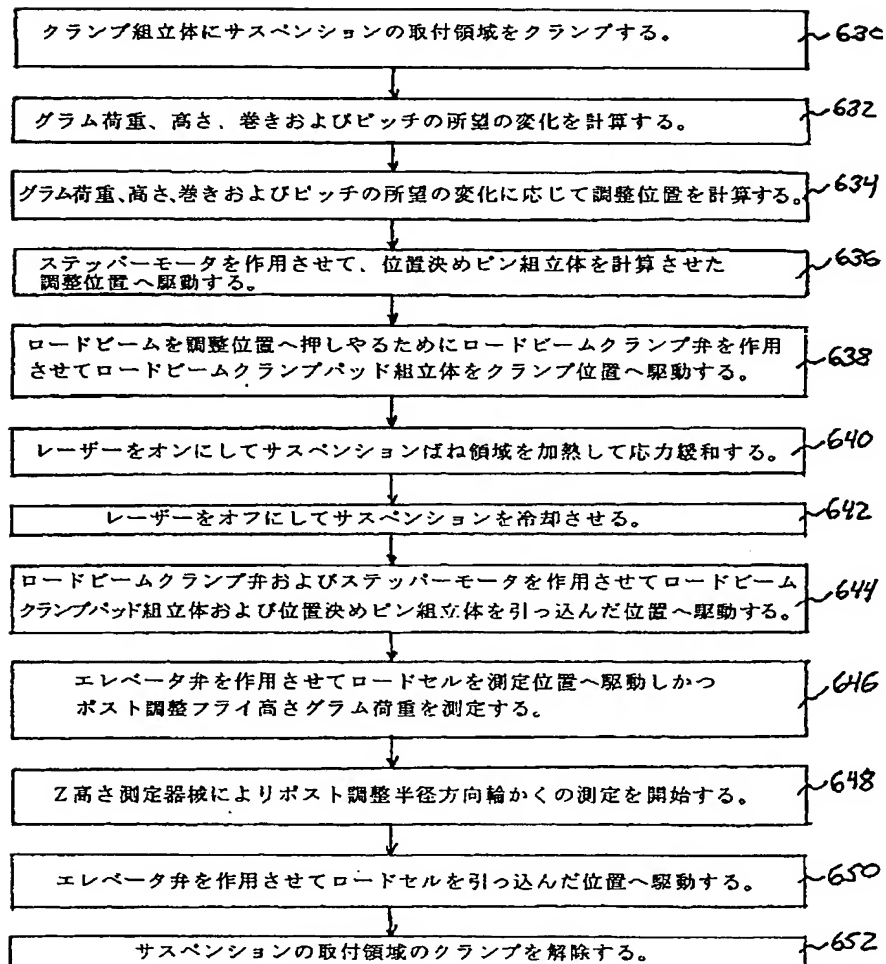 クランプ組立体にサスペンションの取付領域をクランプする。 630
グラム荷重、高さ、巻きおよびピッチの所望の変化を計算する。 632
グラム荷重、高さ、巻きおよびピッチの所望の変化に応じて調整位置を計算する。 634
ステッパーモータを作用させて、位置決めピン組立体を計算させた 636
調整位置へ駆動する。
ロードビームを調整位置へ押しやるためにロードビームクランプ弁を作用 638
させてロードビームクランプパッド組立体をクランプ位置へ駆動する。
レーザーをオンにしてサスペンションばね領域を加熱して応力緩和する。 640
レーザーをオフにしてサスペンションを冷却させる。 642
ロードビームクランプ弁およびステッパーモータを作用させてロードビーム 644
クランプパッド組立体および位置決めピン組立体を引っ込んだ位置へ駆動する。
エレベータ弁を作用させてロードセルを測定位置へ駆動しかつ 646
ポスト調整フライ高さグラム荷重を測定する。
Z高さ測定器械によりポスト調整半径方向輪かくの測定を開始する。 648
エレベータ弁を作用させてロードセルを引っ込んだ位置へ駆動する。 650
サスペンションの取付領域のクランプを解除する。 652